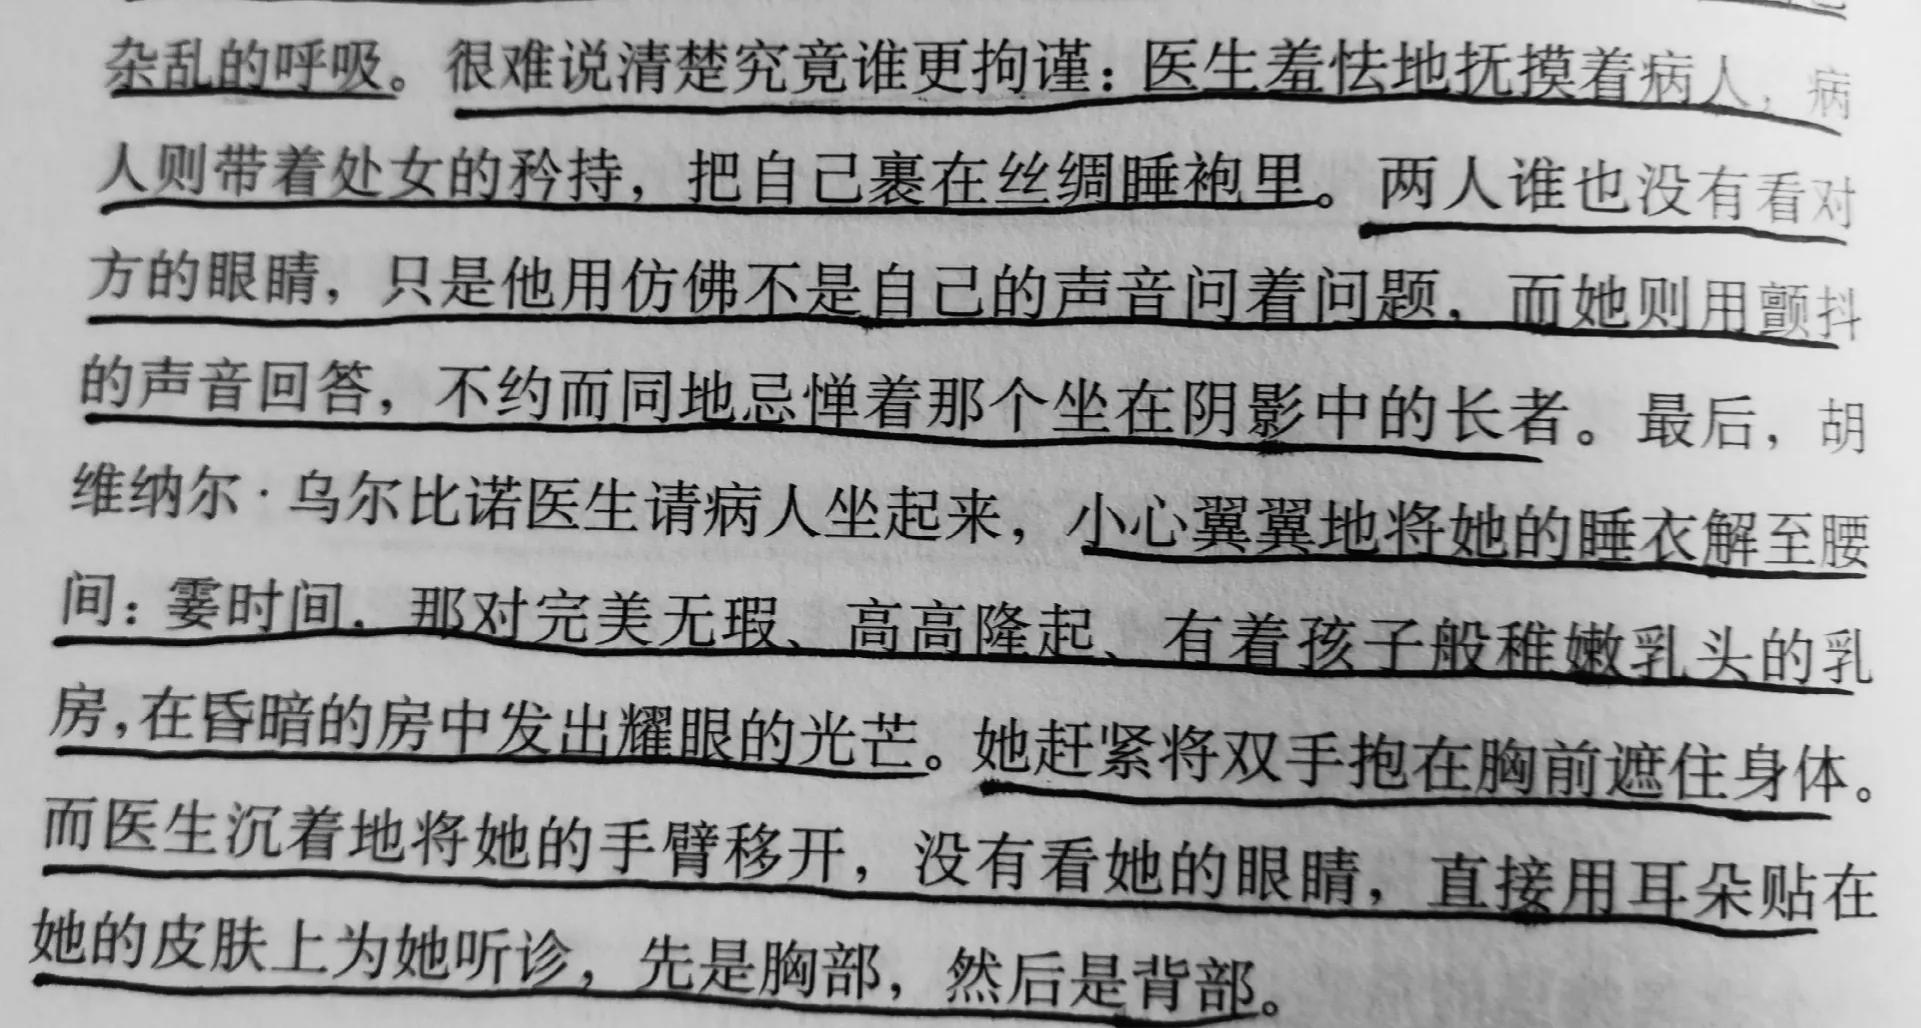 杂乱的呼吸。很难说清楚究竟谁更拘谨：医生羞怯地抚摸着病人，病
人则带着处女的矜持，把自己裹在丝绸睡袍里。两人谁也没有看对
方的眼睛，只是他用仿佛不是自己的声音问着问题，而她则用颤抖
的声音回答，不约而同地忌惮着那个坐在阴影中的长者。最后，胡
维纳尔·乌尔比诺医生请病人坐起来，小心翼翼地将她的睡衣解至腰
间：霎时间，那对完美无瑕、高高隆起、有着孩子般稚嫩乳头的乳
房，在昏暗的房中发出耀眼的光芒。她赶紧将双手抱在胸前遮住身体。
而医生沉着地将她的手臂移开，没有看她的眼睛，直接用耳朵贴在
她的皮肤上为她听诊，先是胸部，然后是背部。